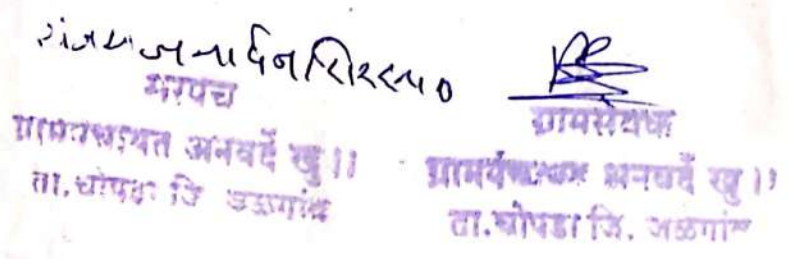 सरपंच
ग्रामपंचायत अनवर्दे खु।।
ता.चोपडा जि जळगांव
ग्रामसेवक
ग्रामपंचायत अनवर्दे खु।।
ता.चोपडा जि. जळगांव